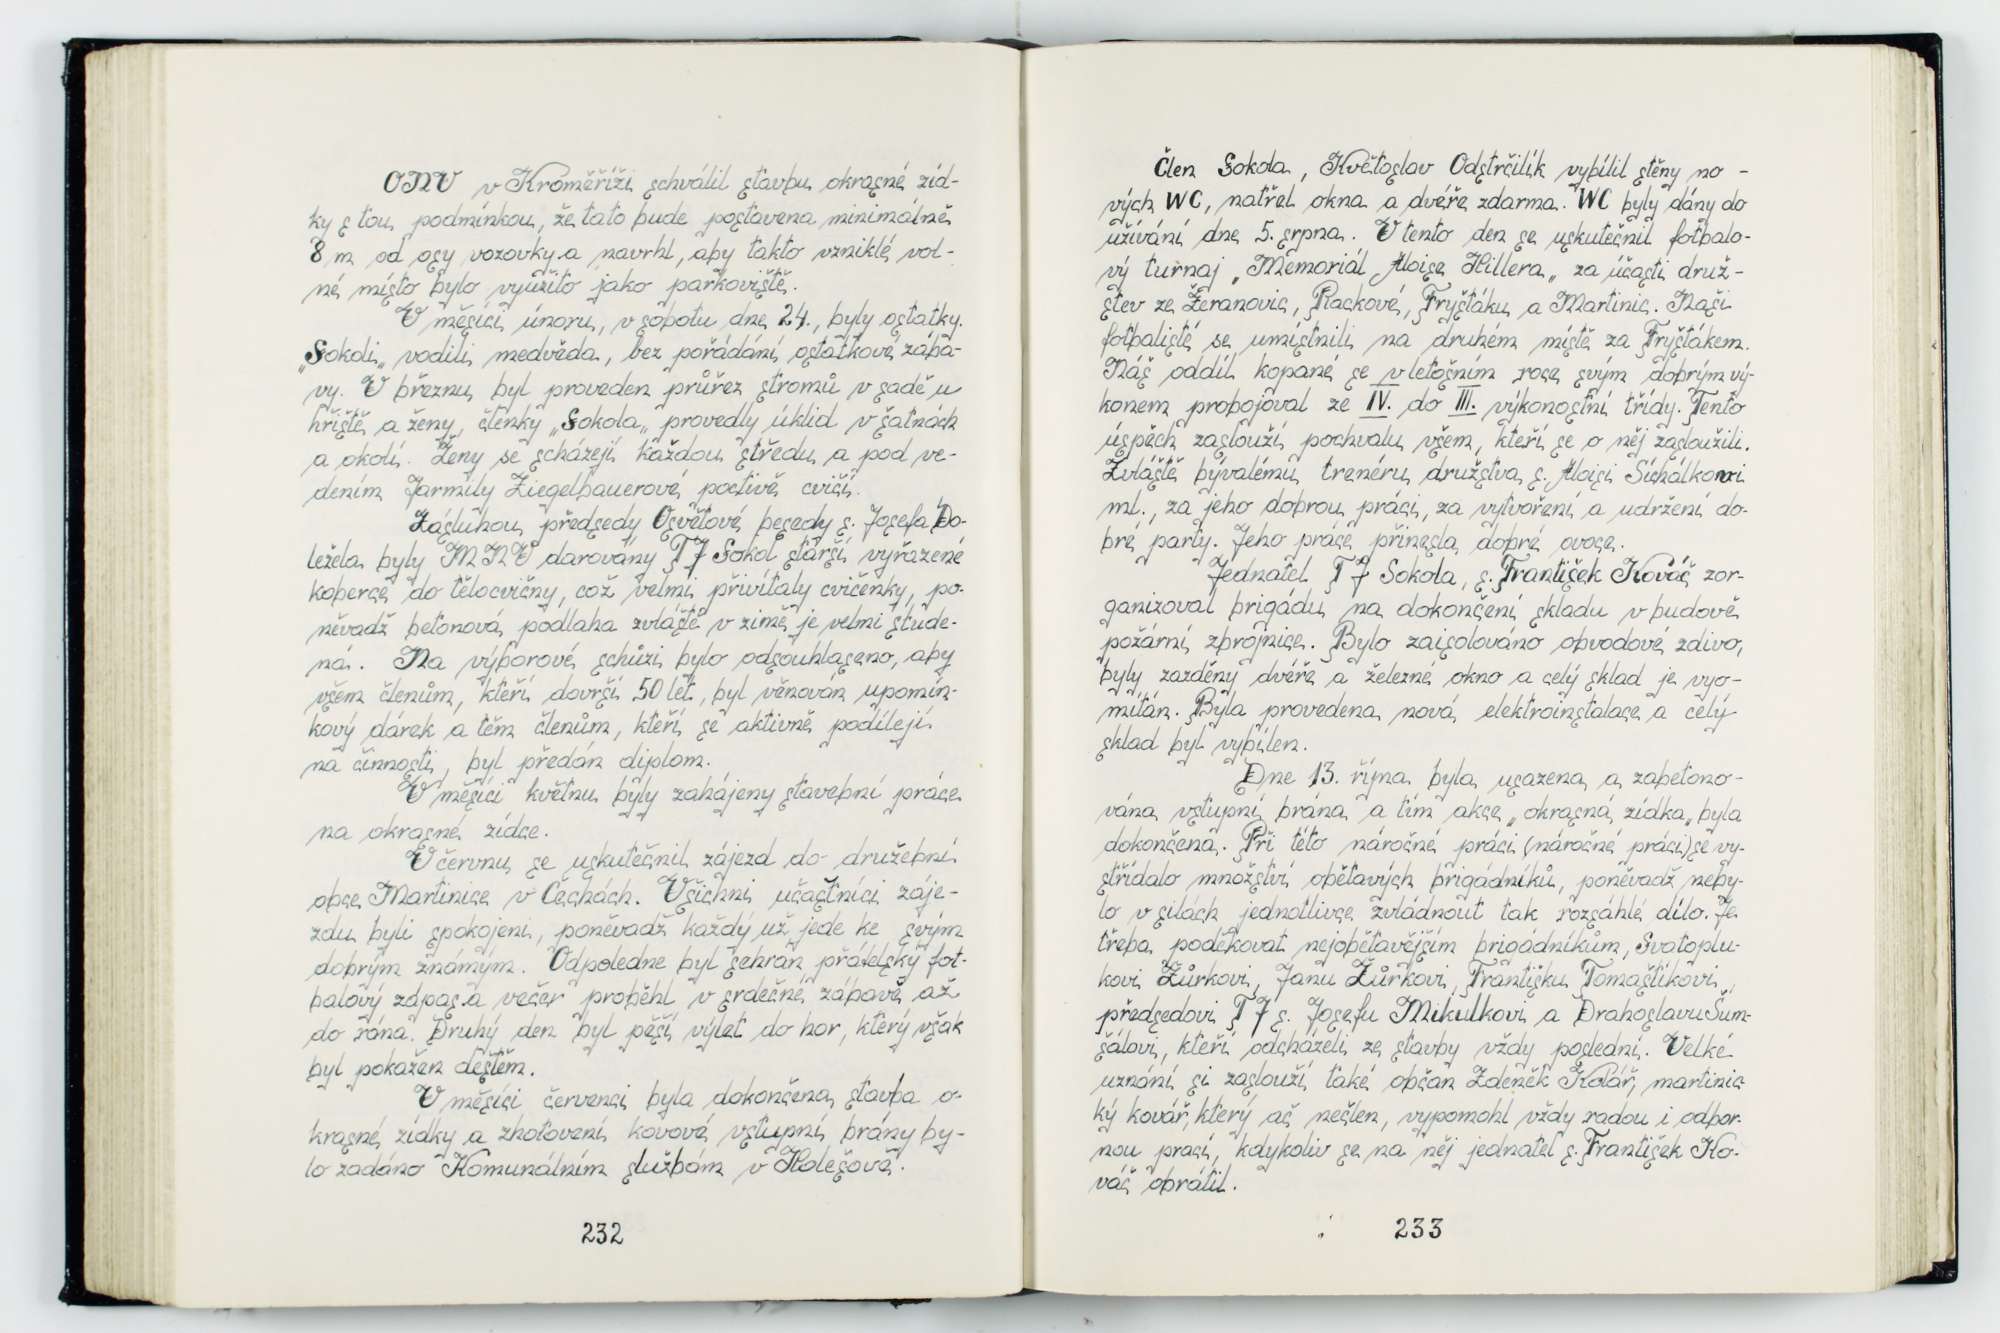 ONV v Kroměříži schválil stavbu okrasné zíd-
ky s tou podmínkou, že tato bude postavena minimálně
8 m od osy vozovky a navrhl, aby takto vzniklé vol-
né místo bylo využito jako parkoviště.
V měsíci únoru, v sobotu dne 24., byly ostatky.
„Sokoli„ vodili medvěda, bez pořádání ostatkové zába-
vy. V březnu byl proveden průřez stromů v sadě u
hřiště a ženy, členky „Sokola„ provedly úklid v šatnách
a okolí. Ženy se scházejí každou středu a pod ve-
dením Jarmily Ziegelbauerové poctivě cvičí.
Zásluhou předsedy Osvětové besedy s. Josefa Do-
ležela byly MNV darovány TJ Sokol starší vyřazené
koberce do tělocvičny, což velmi přivítaly cvičenky, po-
něvadž betonová podlaha zvláště v zimě je velmi stude-
ná. Na výborové schůzi bylo odsouhlaseno, aby
všem členům, kteří dovrší 50 let, byl věnován upomín-
kový dárek a těm členům, kteří se aktivně podílejí
na činnosti, byl předán diplom.
V měsíci květnu byly zahájeny stavební práce
na okrasné zídce.
V červnu se uskutečnil zájezd do družební
obce Martinice v Čechách. Všichni učastníci záje-
zdu byli spokojeni, poněvadž každý už jede ke svým
dobrým známým. Odpoledne byl sehrán přátelský fot-
balový zápas a večer proběhl v srdečné zábavě až
do rána. Druhý den byl pěší výlet do hor, který však
byl pokažen deštěm.
V měsíci červenci byla dokončena stavba o-
krasné zídky a zhotovení kovové vstupní brány by-
lo zadáno Komunálním službám v Holešově.
232
Člen Sokola, Květoslav Odstrčilík vybílil stěny no-
vých WC, natřel okna a dvéře zdarma. WC byly dány do
užívání dne 5. srpna. V tento den se uskutečnil fotbalo-
vý turnaj „Memoriál Aloise Hillera„ za účasti druž-
stev ze Žeranovic, Rackové, Fryštáku a Martinic. Naši
fotbalisté se umístnili na druhém místě za Fryštákem.
Náš oddíl kopané se v letošním roce svým dobrým vý-
konem probojoval ze IV. do III. výkonostní třídy. Tento
úspěch zaslouží pochvalu všem, kteří se o něj zasloužili.
Zvláště bývalému trenéru družstva s. Aloisi Síchálkovi
ml., za jeho dobrou práci, za vytvoření a udržení do-
bré party. Jeho práce přinesla dobré ovoce.
Jednatel TJ Sokola, s. František Kováč zor-
ganizoval brigádu na dokončení skladu v budově
požární zbrojnice. Bylo zaisolováno obvodové zdivo,
byly zazděny dvéře a železné okno a celý sklad je vyo-
mítán. Byla provedena nová elektroinstalace a celý
sklad byl vybílen.
Dne 13. října byla usazena a zabetono-
vána vstupní brána a tím akce „okrasná zídka„ byla
dokončena. Při této náročné práci (náročné práci) se vy-
střídalo množství obětavých brigádníků, poněvadž neby-
lo v silách jednotlivce zvládnout tak rozsáhlé dílo. Je
třeba poděkovat nejobětavějším brigádníkům, Svatoplu-
kovi Žůrkovi, Janu Žůrkovi, Františku Tomaštíkovi,
předsedovi TJ s. Josefu Mikulkovi a Drahoslavu Šum-
šálovi, kteří odcházeli ze stavby vždy poslední. Velké
uznání si zaslouží také občan Zdeněk Kolář, martinic-
ký kovář, který ač nečlen, vypomohl vždy radou i odbor-
nou prací, kdykoliv se na něj jednatel s. František Ko-
váč obrátil.
233